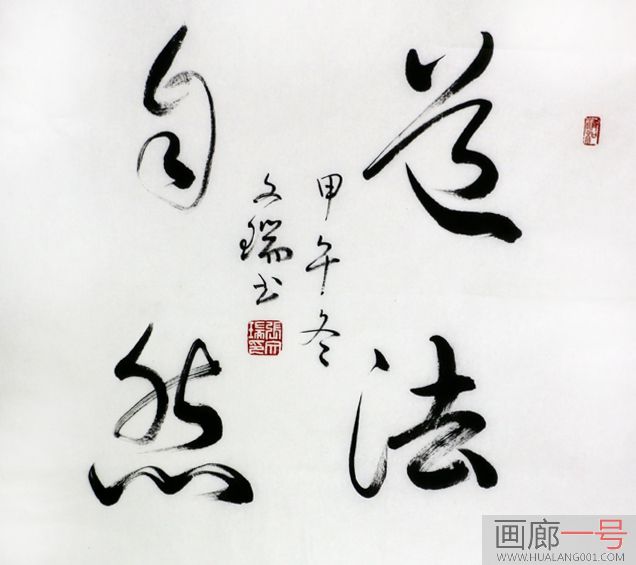 道法
自然
甲午冬
文瑞书
張文
瑞印
画廊一号
WWW.HUALANG001.COM